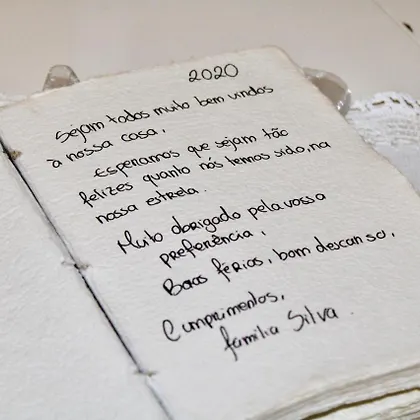 2020
Sejam todos muito bem vindos
à nossa casa,
Esperamos que sejam tão
felizes quanto nós temos sido, na
nossa estrela.
Muito obrigado pela vossa
preferência,
Boas férias, bom descanso,
Cumprimentos,
família Silva.